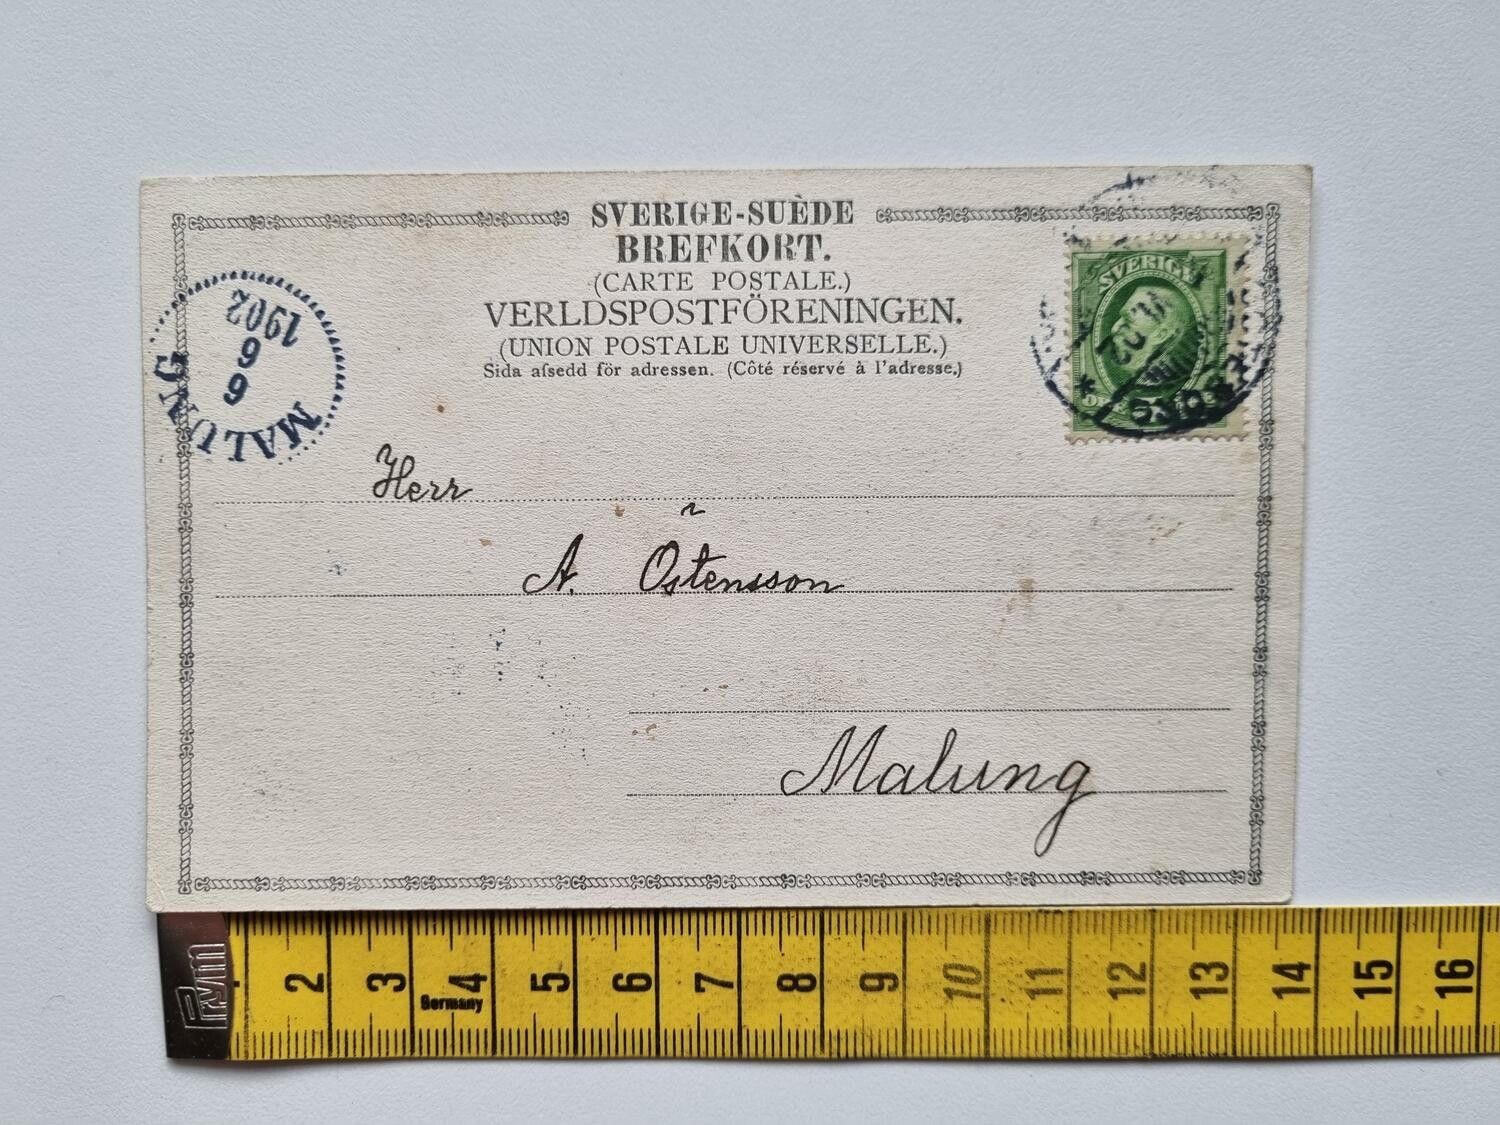 SVERIGE-SUÈDE
BREFKORT.
(CARTE POSTALE.)
VERLDSPOSTFÖRENINGEN.
(UNION POSTALE UNIVERSELLE.)
Sida afsedd för adressen. (Côté réservé à l'adresse.)
MALUNG
6 6
1902
SVERIGE
Herr
A. Östensson
Malung
Prym
2 3 4 5 6 7 8 9 10 11 12 13 14 15 16
Germany